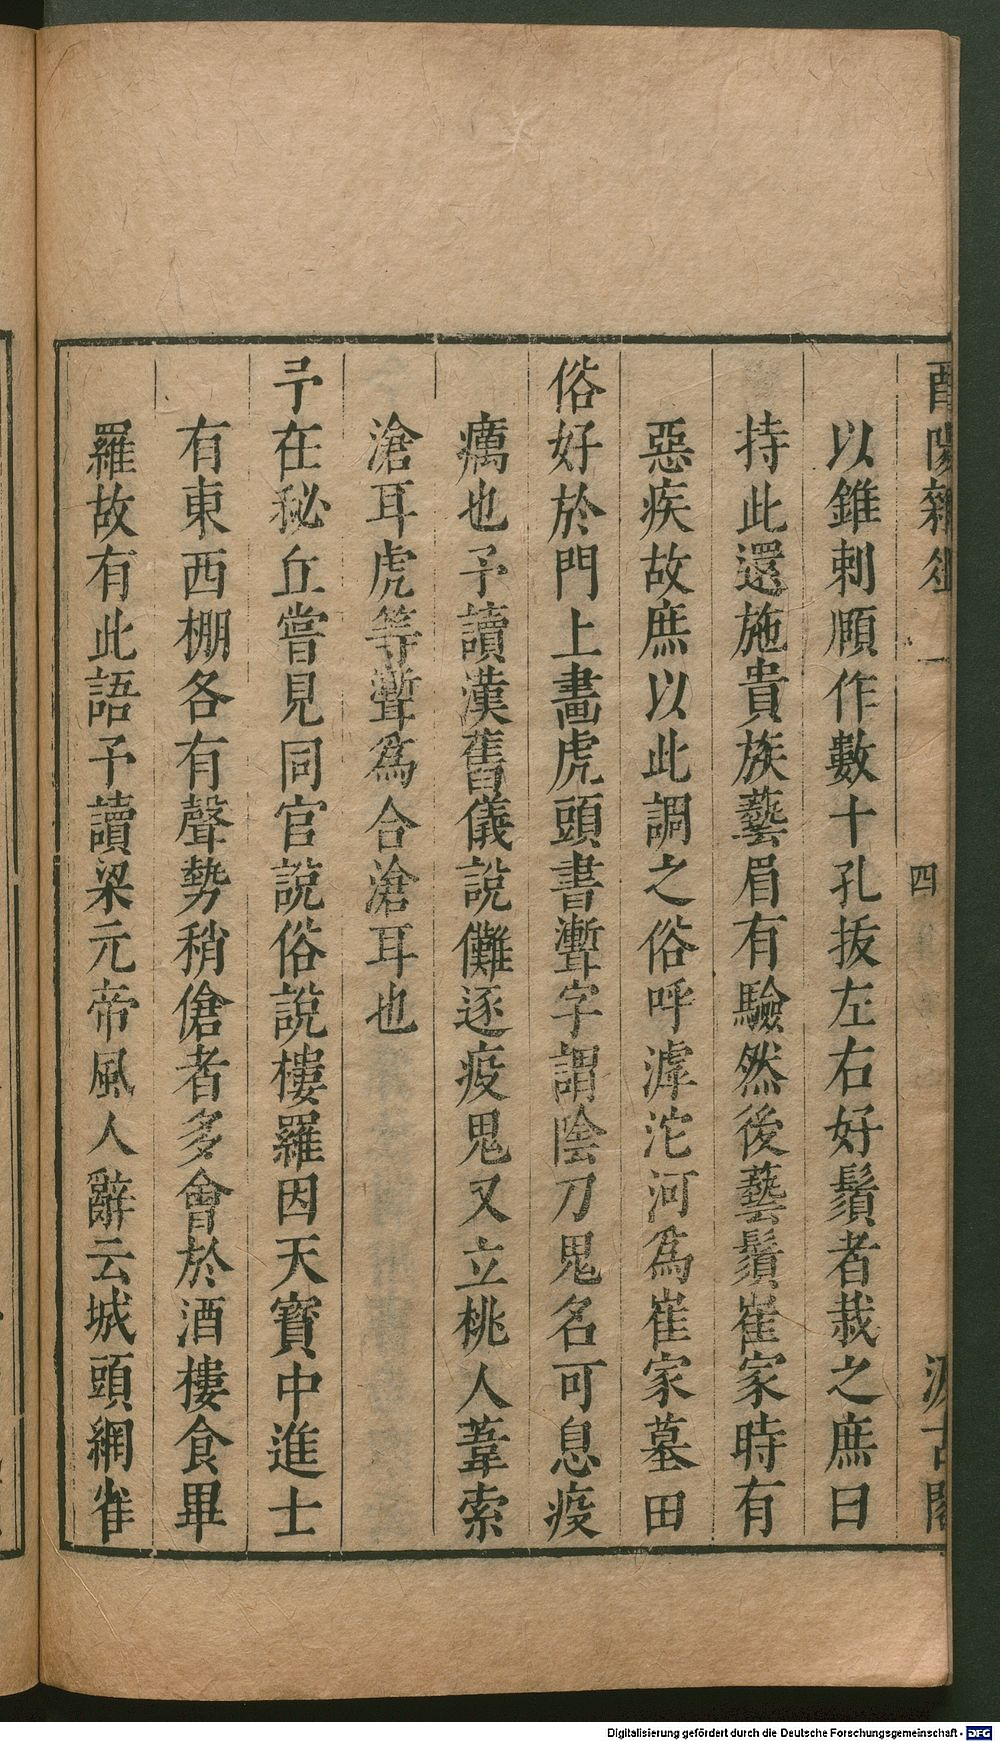 酉陽雜俎 一 四 汲古閣
以錐刺頤作數十孔拔左右好鬚者栽之庶曰
持此還施貴族藝眉有驗然後藝鬚崔家時有
惡疾故庶以此調之俗呼滹沱河爲崔家墓田
俗好於門上畫虎頭書聻字謂陰刀鬼名可息疫
癘也予讀漢舊儀說儺逐疫鬼又立桃人葦索
滄耳虎等聻爲合滄耳也
予在秘丘嘗見同官說俗說樓羅因天寶中進士
有東西棚各有聲勢稍傖者多會於酒樓食畢
羅故有此語予讀梁元帝風人辭云城頭網雀
Digitalisierung gefördert durch die Deutsche Forschungsgemeinschaft - DFG